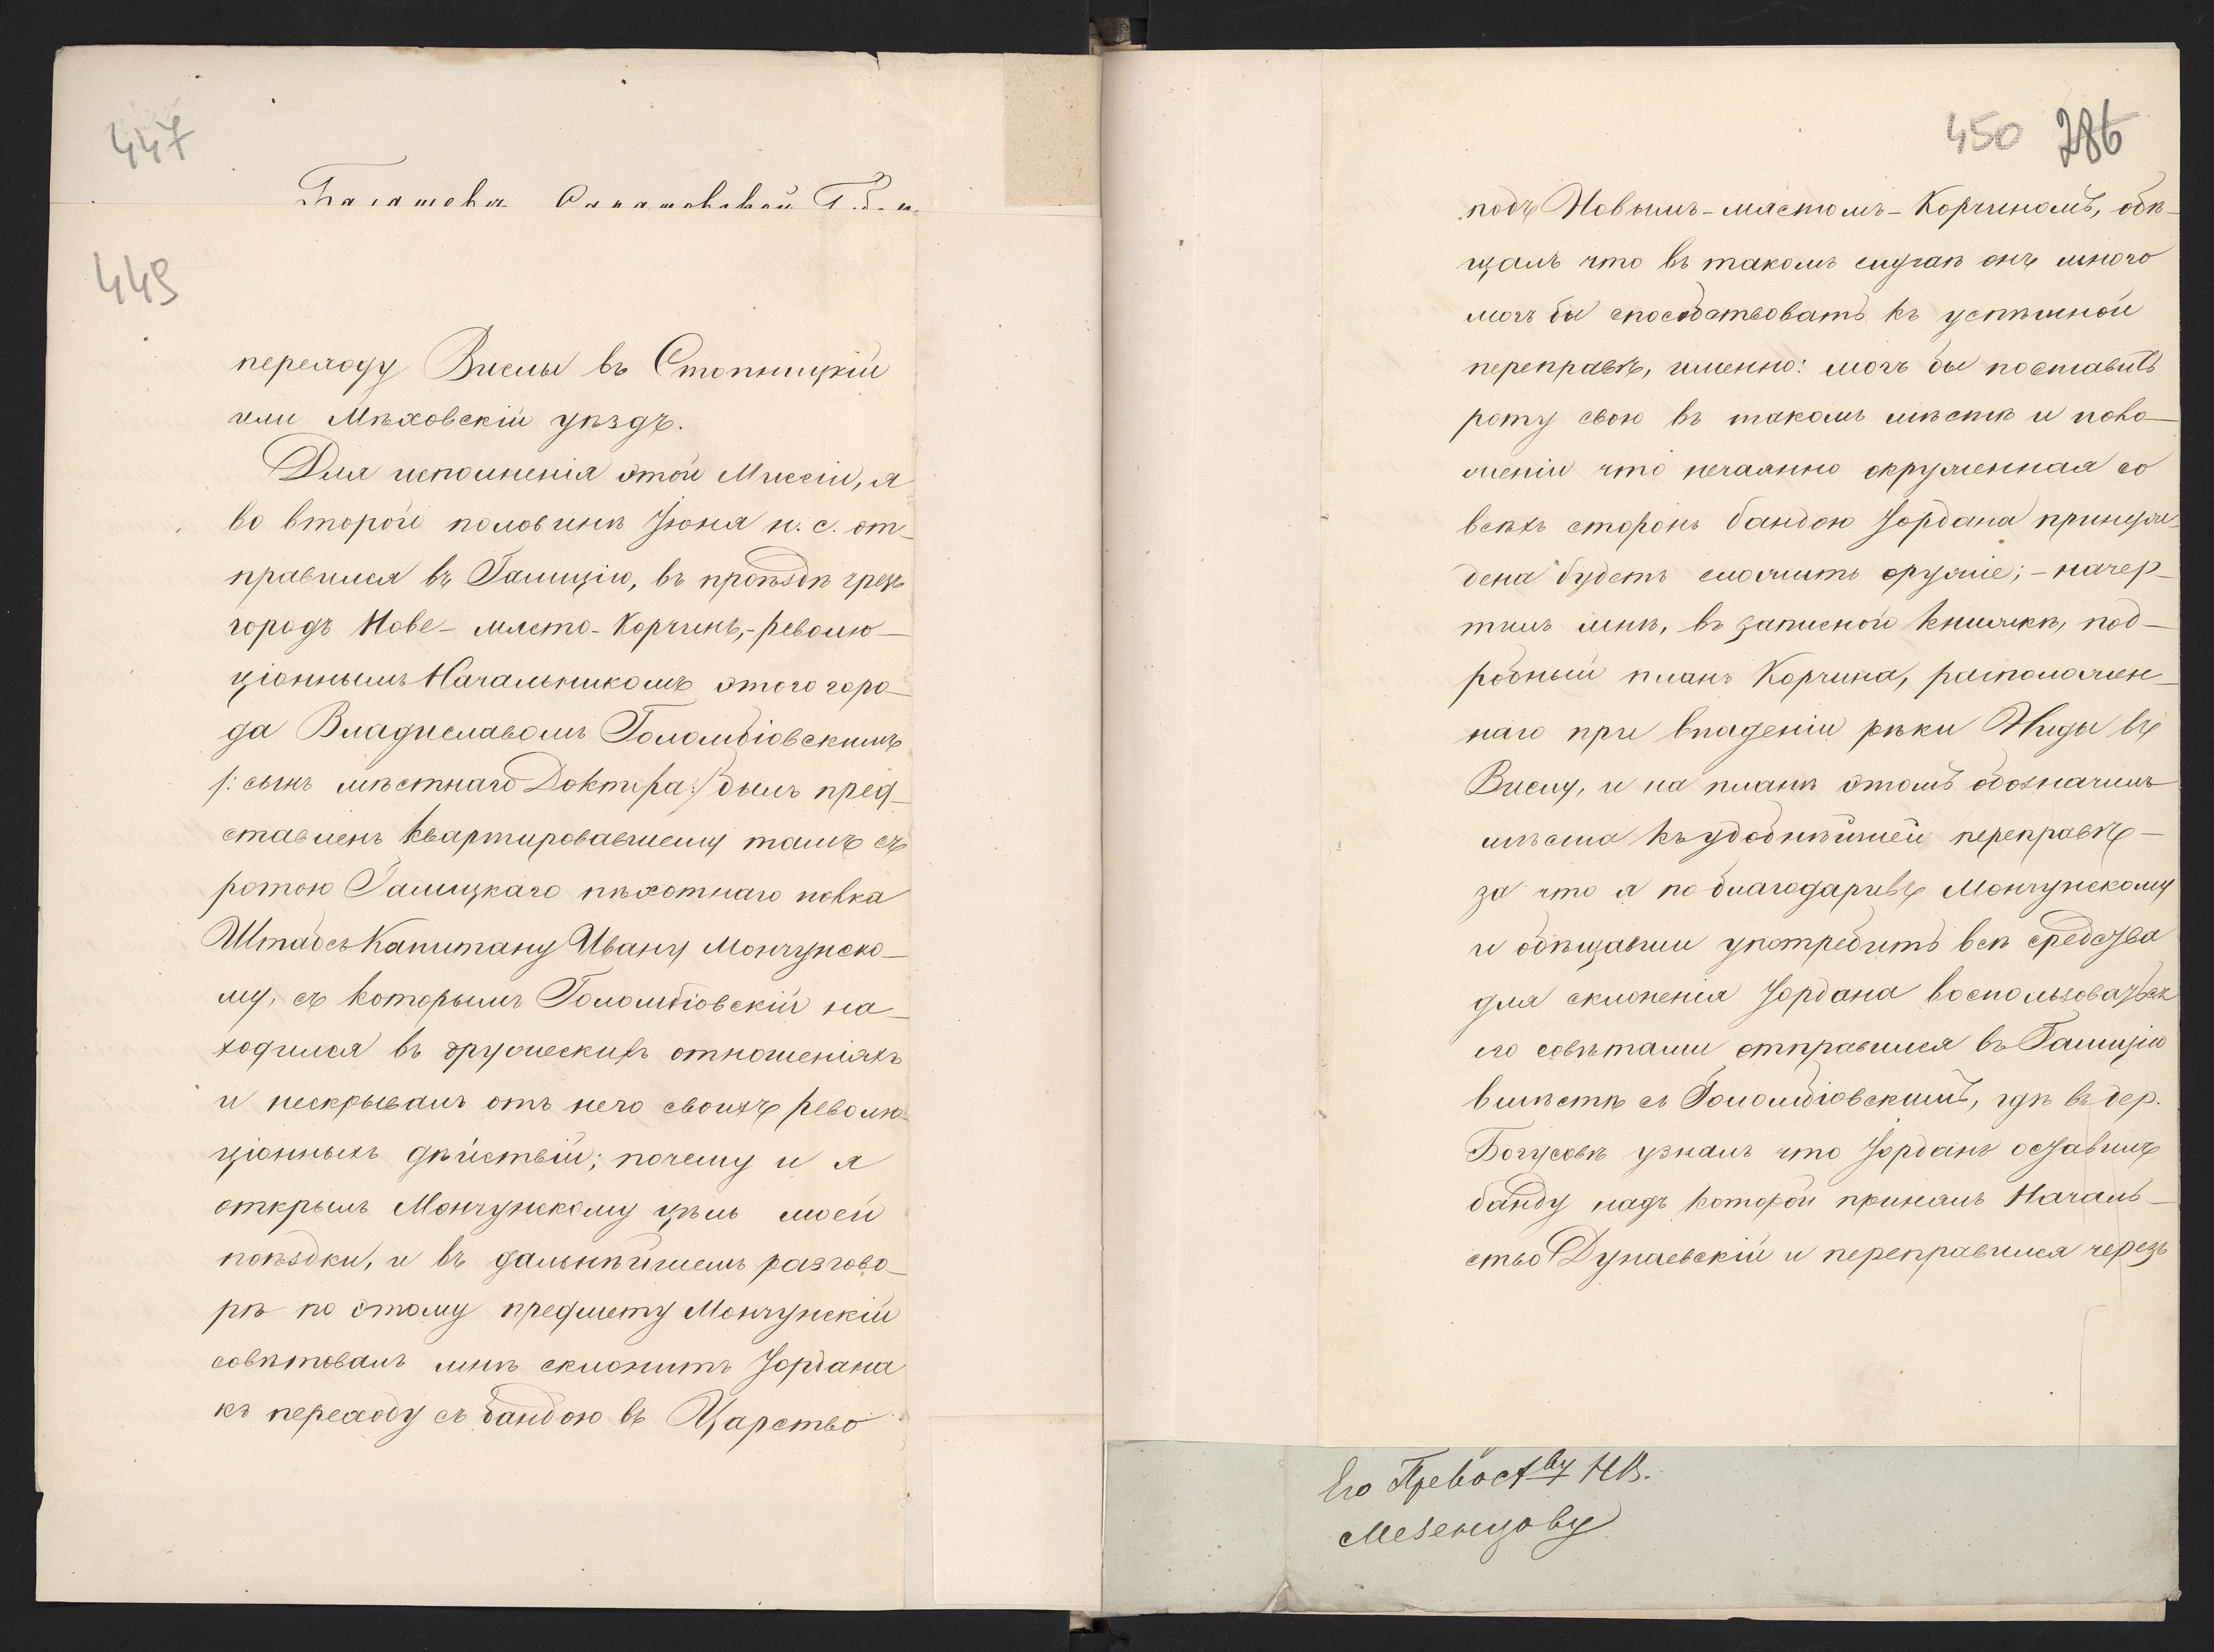 447
Балашева Саратовской Губ.
449
переходу Вислы въ Стопницкій
или Мѣховскій уѣздъ.
Для исполненія этой Миссіи, я
во второй половинѣ Іюня н. с. от-
правился въ Галицію, въ проѣздѣ чрезъ
городъ Нове-място-Корчинъ,- револю-
ціоннымъ Начальникомъ этого горо-
да Владиславомъ Голомбіовскимъ
/: сынъ мѣстнаго Доктора :/ былъ пред-
ставленъ квартировавшему тамъ съ
ротою Галицкаго пѣхотнаго полка
Штабсъ Капитану Ивану Мончунско-
му, съ которымъ Голомбіовскій на-
ходился въ дружескихъ отношеніяхъ
и нескрывалъ отъ него своихъ револю-
ціонныхъ дѣйствій; почему и я
открылъ Мончунскому цѣль моей
поѣздки, и въ дальнѣйшемъ разгово-
рѣ по этому предмету Мончунскій
совѣтовалъ мнѣ склонить Іордана
къ переходу съ бандою въ Царство
450 286
подъ Новымъ-мястомъ-Корчиномъ, обѣ-
щалъ что въ такомъ случаѣ онъ много
могъ бы способствовать къ успѣшной
переправѣ, именно: могъ бы поставить
роту свою въ такомъ мѣстѣ и поло-
женіи что нечаянно окруженная со
всѣхъ сторонъ бандою Іордана принуж-
дена будетъ сложить оружіе; - начер-
тилъ мнѣ, въ записной книжкѣ, под-
робный планъ Корчина, расположен-
наго при впаденіи рѣки Ниды въ
Вислу, и на планѣ этомъ обозначилъ
мѣста къ удобнѣйшей переправѣ -
за что я поблагодаривъ Мончунскому
и обѣщавши употребить всѣ средства
для склоненія Іордана воспользоваться
его совѣтами отправился въ Галицію
вмѣстѣ съ Голомбіовскимъ, гдѣ въ дер.
Богусовѣ узналъ что Іорданъ оставилъ
банду надъ которой принялъ Началь-
ство Дунаевскій и переправился черезъ
Его Превост-ву НВ.
Мезенцову